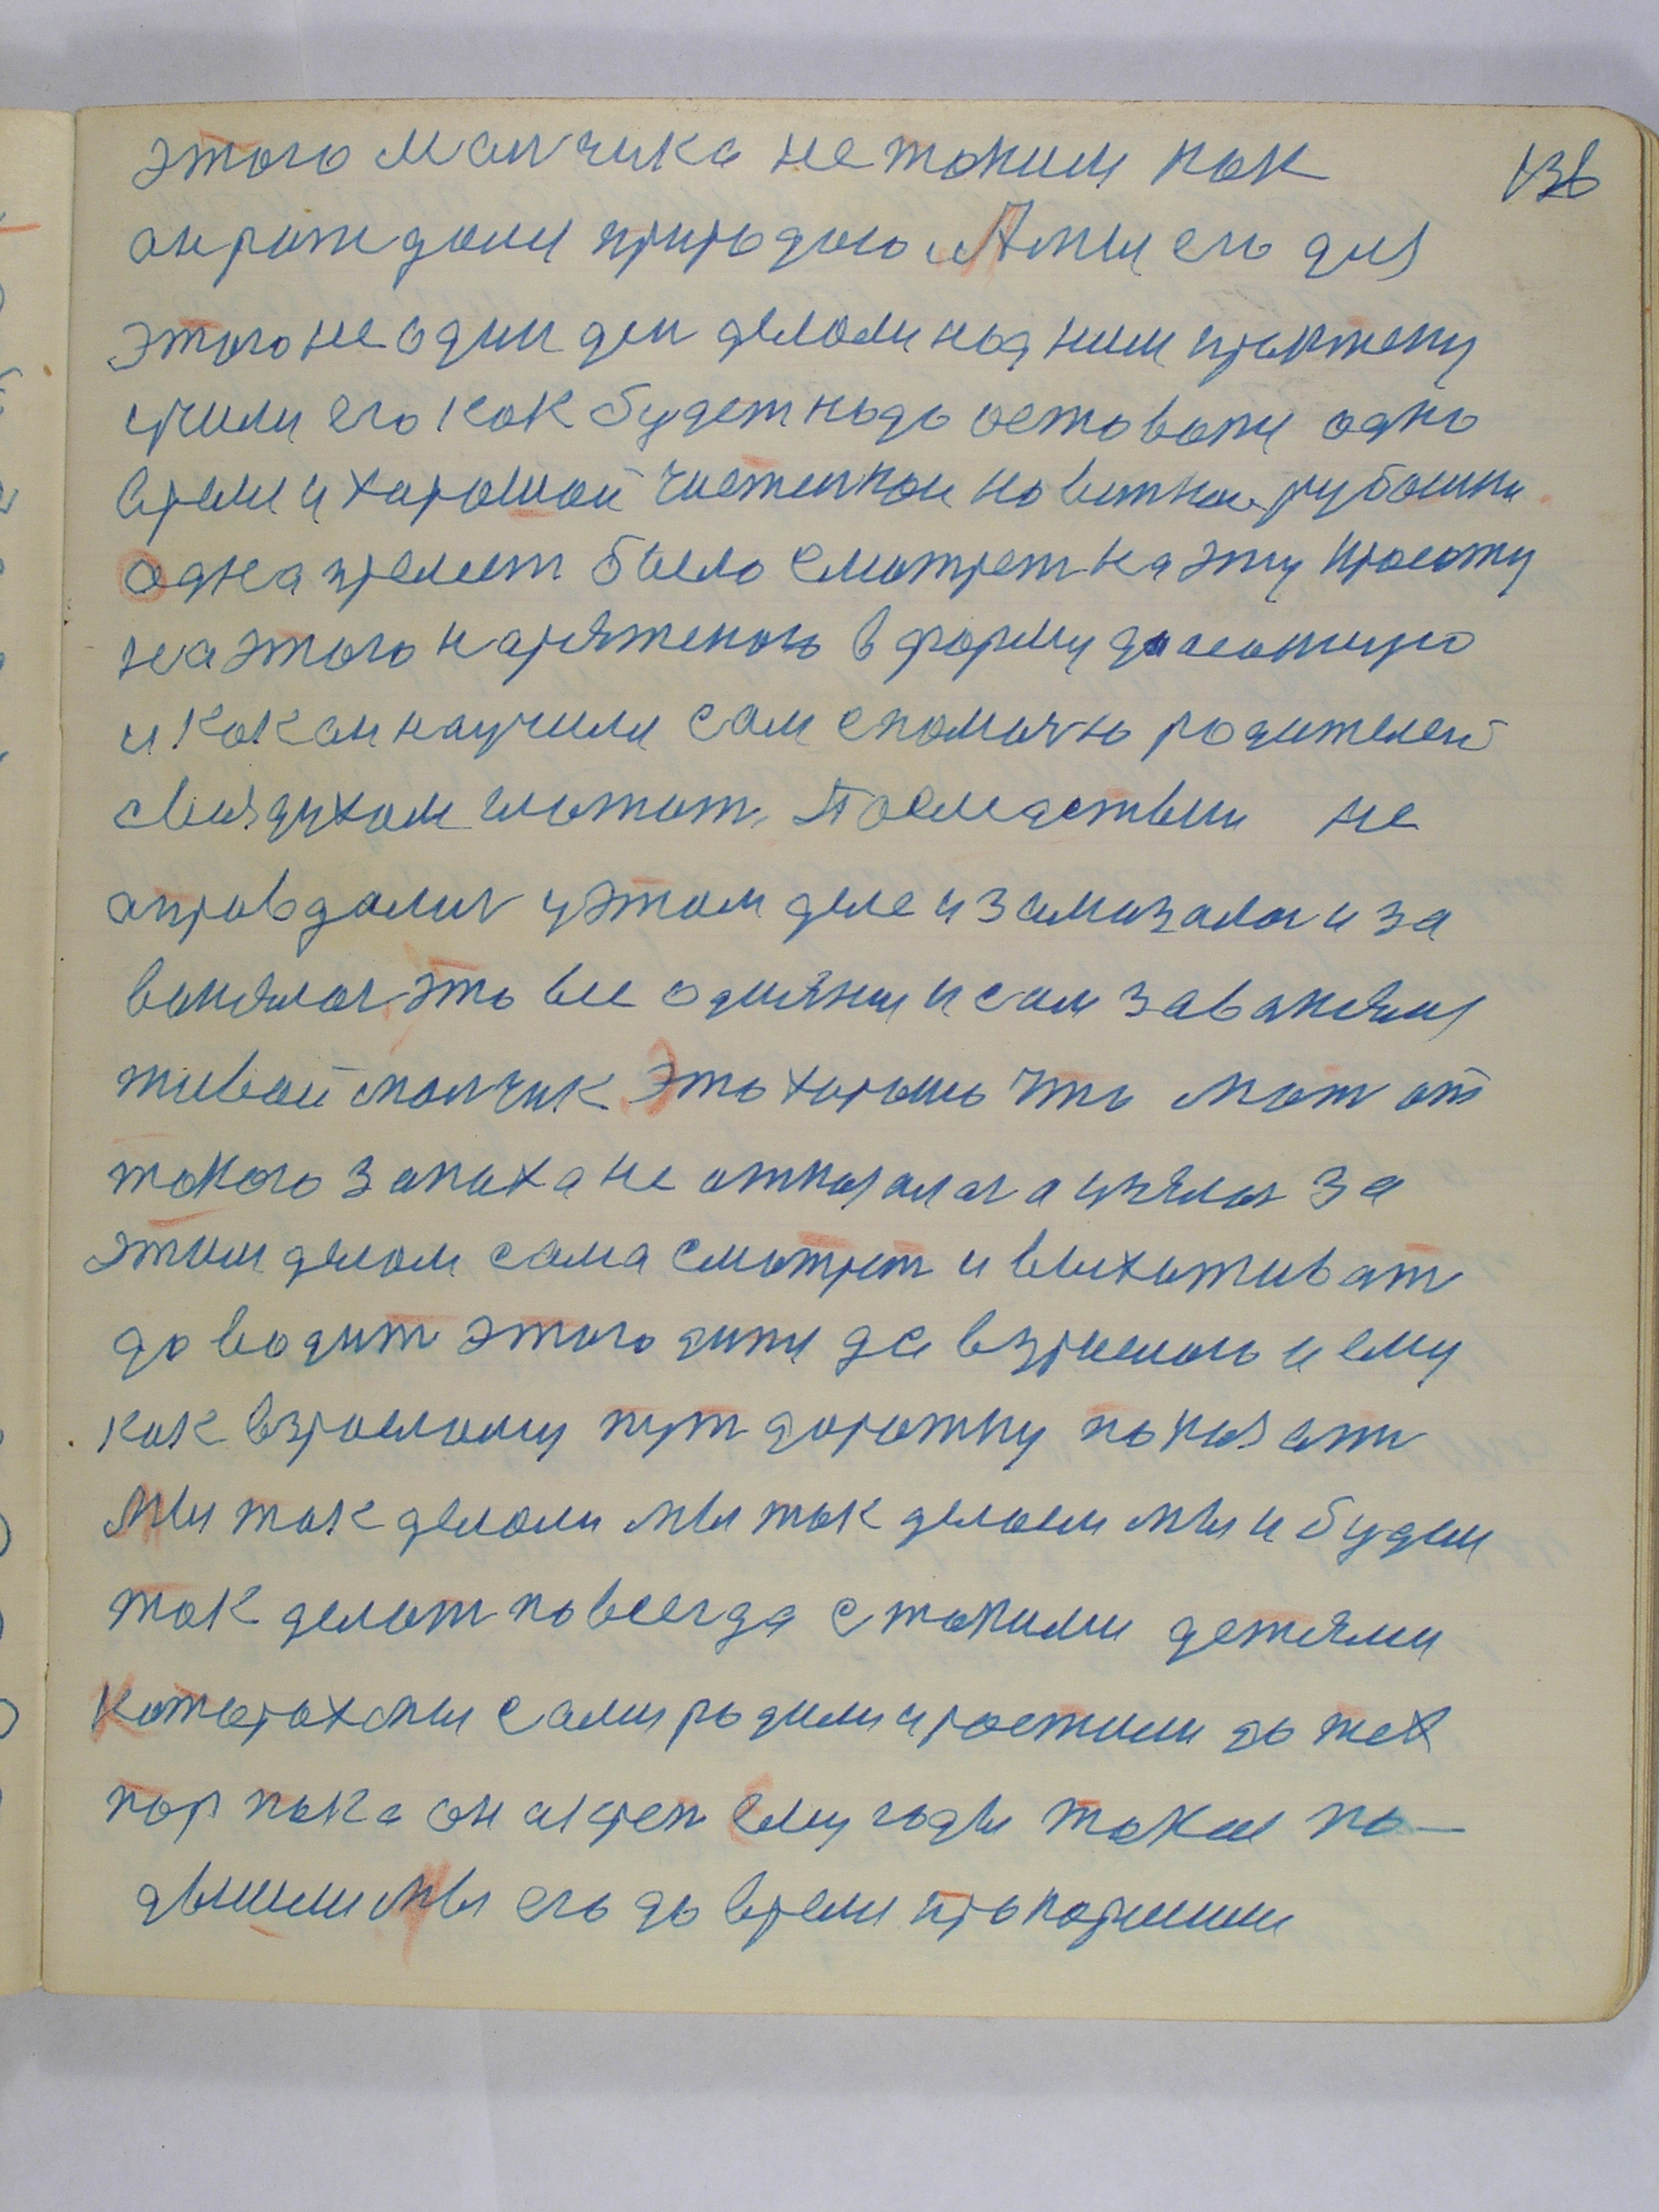 этого малчика не такими как 136
он рождали природою. А мы его для
этого не один ден делали над ним
учили его как будет надо оставати одно
время и харошой чистинкои но витнои рубашки
одна прелест была смотрет на эту кросоту
на этого наряженого в форму
и как он научили сам с помочю родителей
свой духом читат. Последствии не
оправдалис у этом деле и замазалас и за
ванялас это все одияния и сам заванялся
живой малчик Это харашо что мат от
такого запаха не отказалас а узялас за
этим делом сама смотрет и выхаживат
доводит этого дитя да взрослого и ему
как взрослому пут дорожку показат
Мы так делали мы так делаем мы и будем
так делат повсегда с такими детями
Которах мы сами родили и ростили до тех
пор пока он окреп ему годы такие по-
дышли Мы его до время прокормили